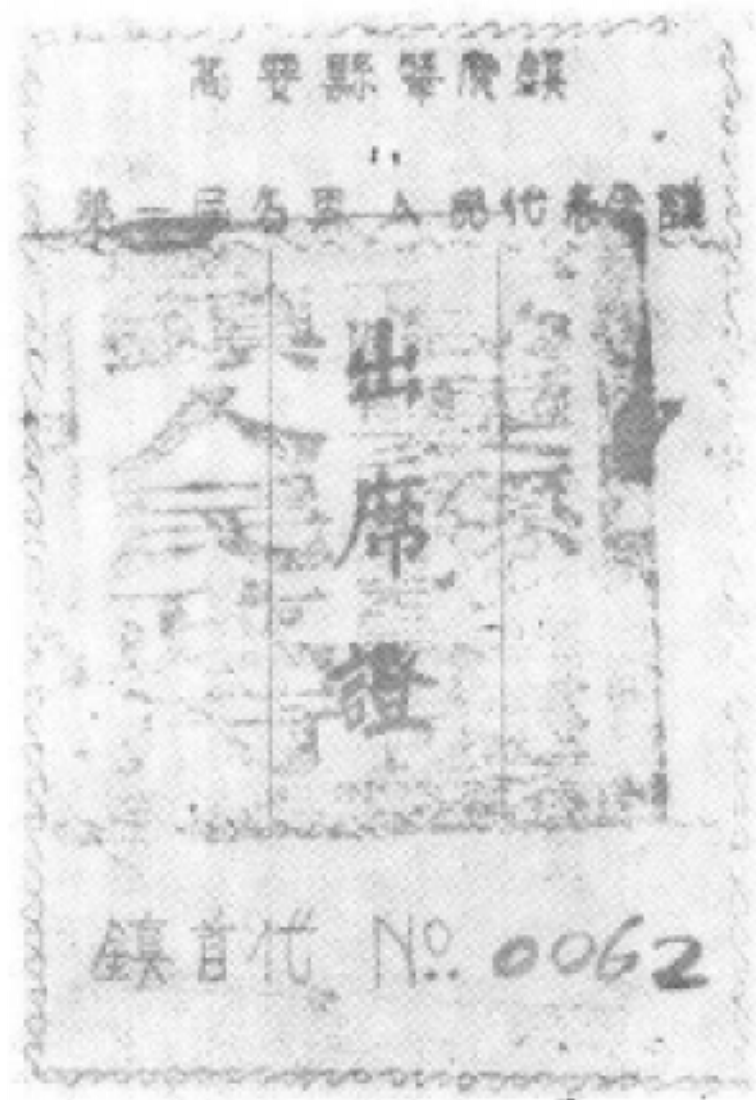 高要縣肇慶鎮
第一屆各界人民代表會議
出
席
證
鎮首代 No. 0062